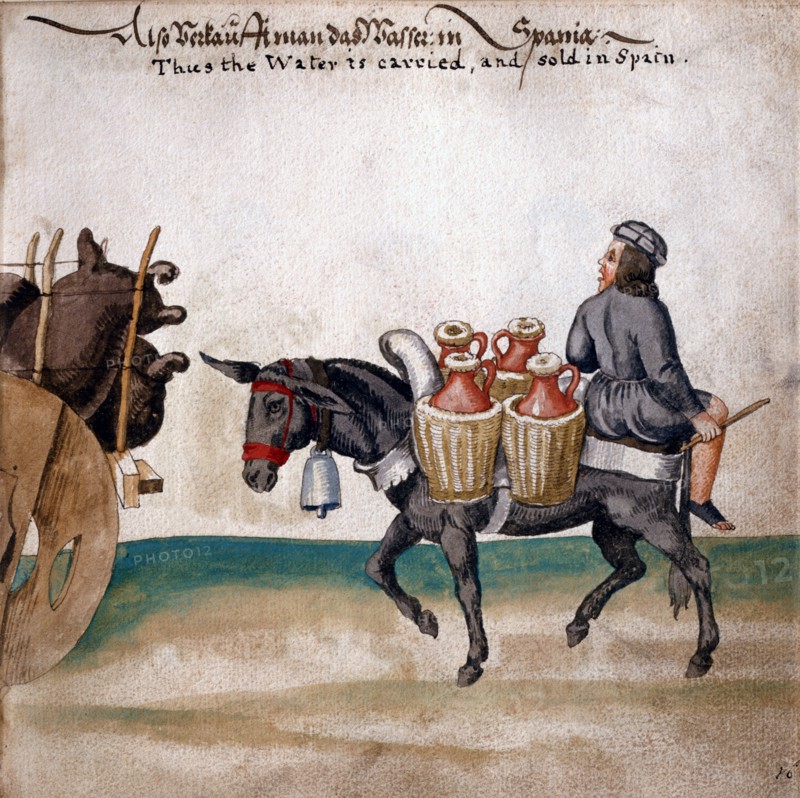 Also Verkaufft man das Wasser: in Spania:
Thus the Water is carried, and sold in Spain.
PHOTO12